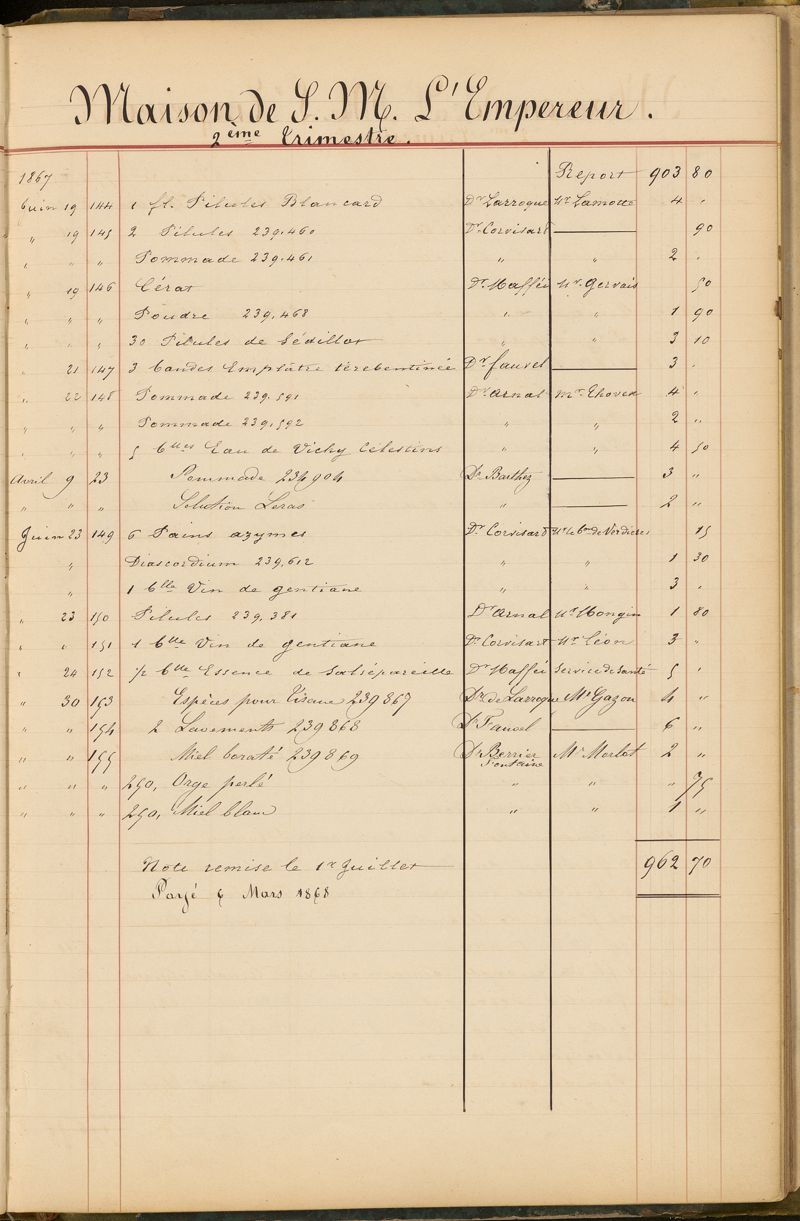 Maison de S. M. L'Empereur.
2ème Trimestre.
1867 Report 903 80
Juin 19 144 1 fl. Pilules Blancard Dr Larroque Mr Lamotte 4 "
" 19 145 2 Pilules 239.460 Dr Corvisart — 90
" " " Pommade 239.461 " " 2 "
" 19 146 Cérat Dr Maffei Mr Gervais 50
" " " Poudre 239.468 " " 1 90
" " " 30 Pilules de Sédillot " " 3 10
" 21 147 3 bandes Emplâtre térébentiné Dr Fauvel — 3 "
" 22 148 Pommade 239.591 Dr Arnal Mr Thoven 4 "
" " " Pommade 239.592 " " 2 "
" " " 5 blles Eau de Vichy Célestins " " 4 50
Avril 9 23 Pommade 234904 Dr Barthez — 3 "
" " " Solution Leras " — 2 "
Juin 23 149 6 Pains azymes Dr Corvisart Mr le Bon de Verdiere 15
" Diascordium 239.612 " " 1 30
" 1 blle Vin de gentiane " " 3 "
" 23 150 Pilules 239.381 Dr Arnal Mr Mongin 1 80
" " 151 1 blle Vin de gentiane Dr Corvisart Mr Léon 3 "
" 24 152 1/2 blle Essence de Salsepareille Dr Maffei Service de Santé 5 "
" 30 153 Espèces pour tisane 239867 Dr de Larroque Mr Gazon 4 "
" " 154 2 Lavements 239868 Dr Fauvel — 6 "
" " 155 Miel boraté 239869 Dr Berrier Fontaine Mr Morlot 2 "
" " " 250, Orge perlé " " " 75
" " " 250, Miel blanc " " 1 "
Note remise le 1er Juillet 962 70
Payé 6 Mars 1868